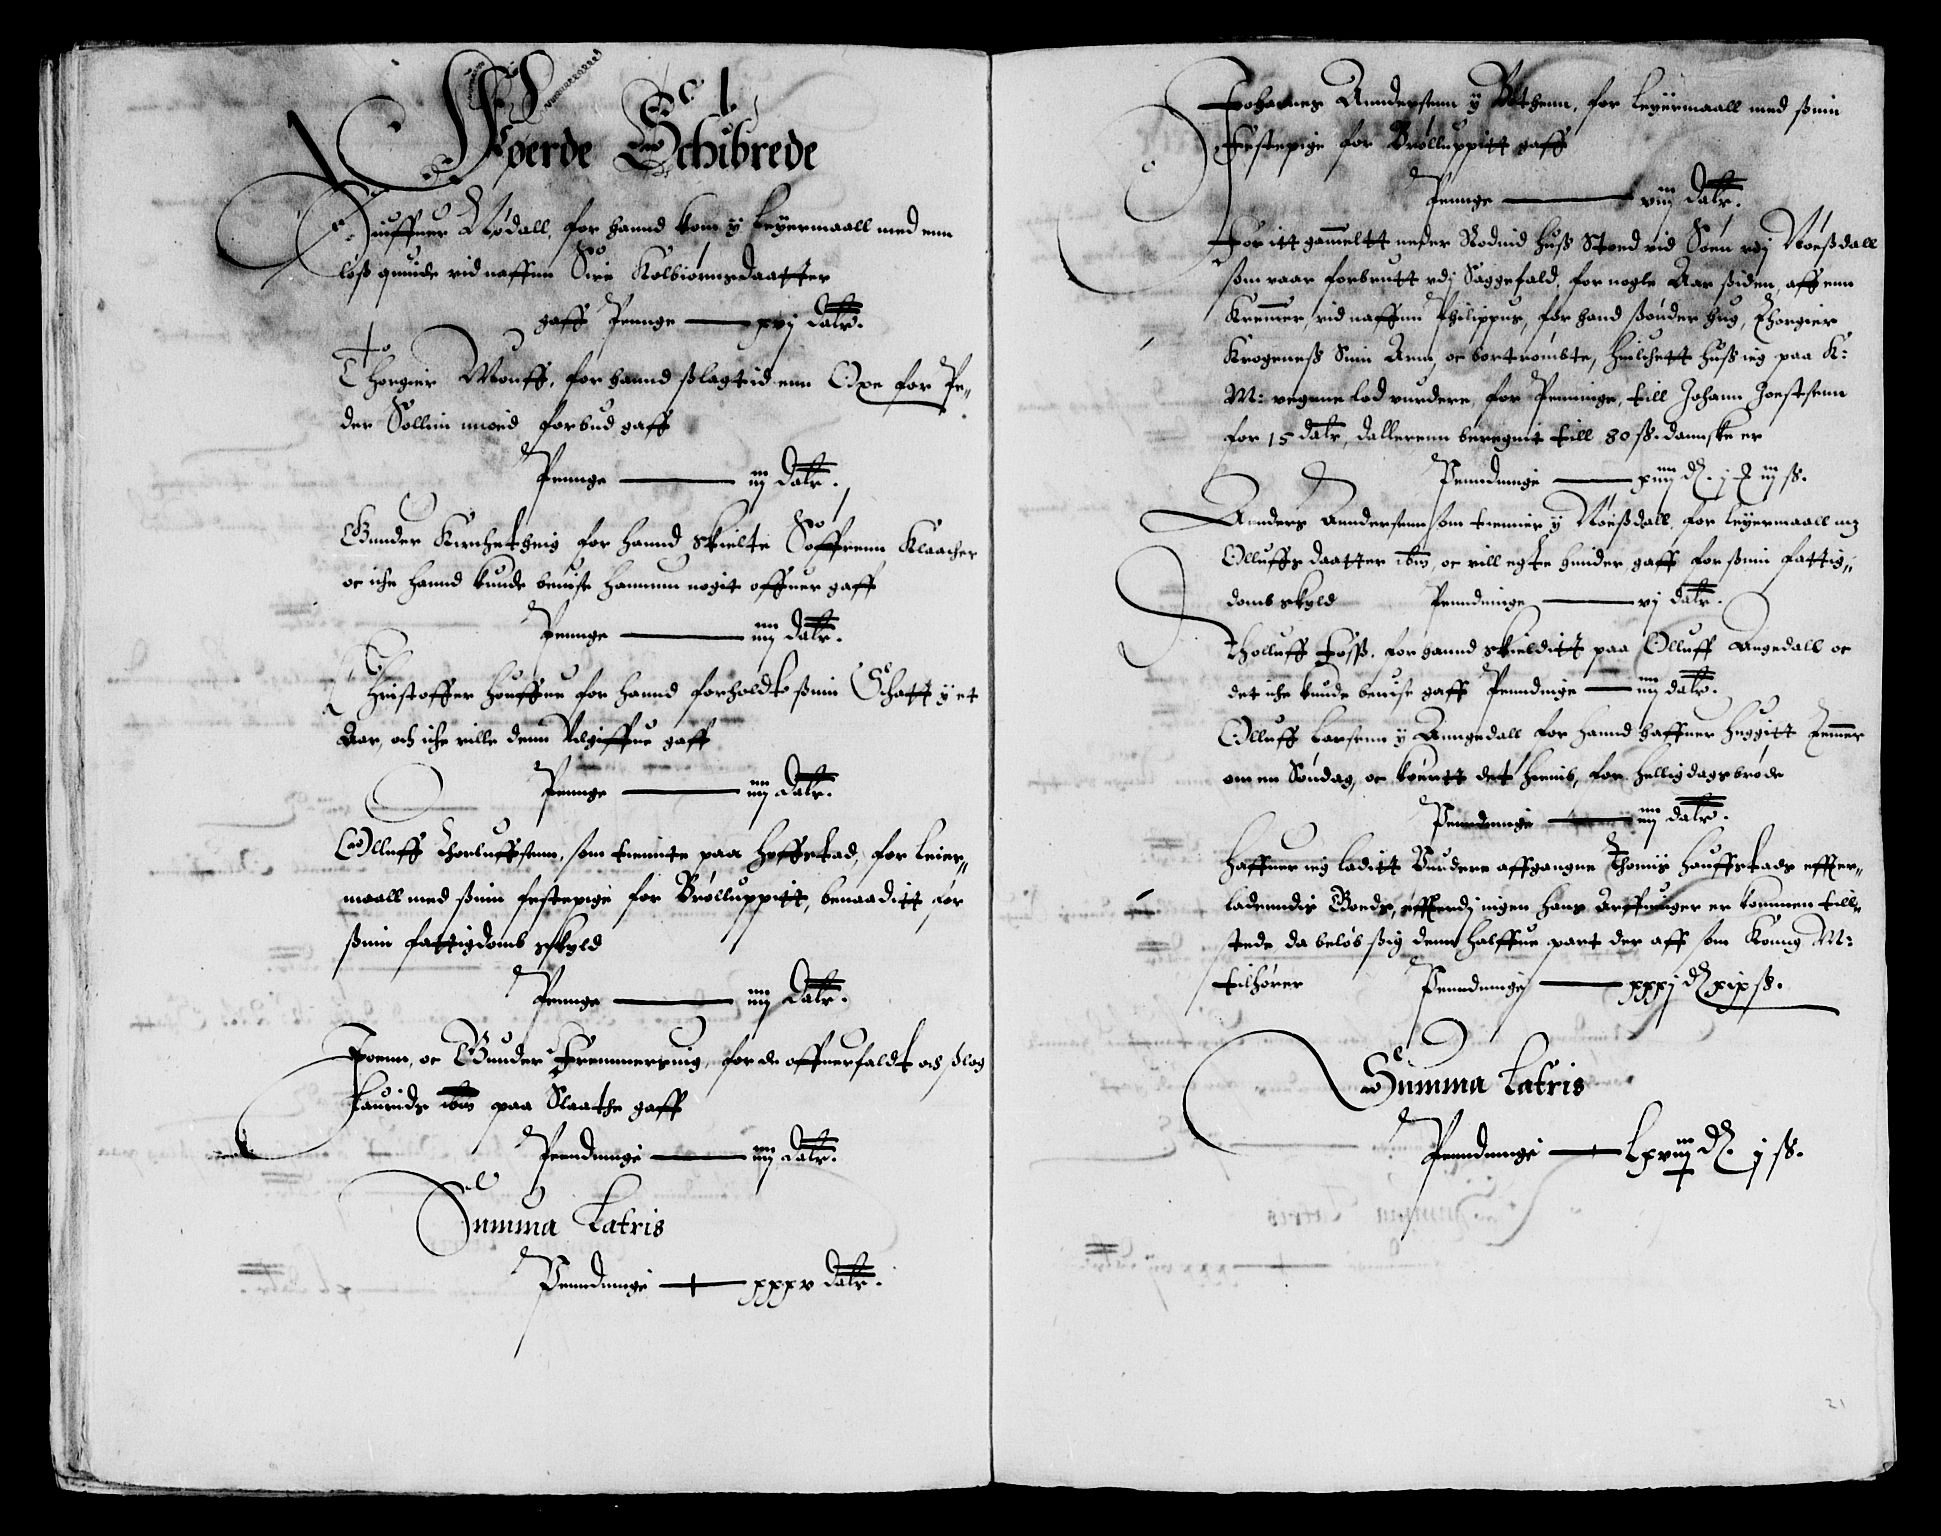 Føerde Schibrede
Giuffuer Nødall, for hannd kom y Leyermaall med enn
løß quinde ved naffnn Siri Kolbiornsdaatter
gaff Penge — xvj Daler.
Thorgier Mouff, for hannd slagtid enn Oxe for Pe„
der Sollim imoid forbud gaff
Penge — iij Daler.
Gunder Kirchetheig for hannd skielte Søffrenn Klaacher
oc iche hannd kunde beuise hannem nogit offuer gaff
Penge — iiij daler.
Christoffer Houffue for hannd forholdt sinn Schatt y et
Aar, och iche ville denn Udgiffue gaff
Penge — iiij Daler.
Olluff Thorluffsenn, som tiennte paa Hoffstad, for Leier„
maall med sinn festepige for Brølluppitt, benaaditt for
sinn fattigdomb skyld
Penge — iiij Daler.
Joenn, oc Gunder Fremmersuig, for de offuerfaldt och slog
Lauridz ibm paa Slaathe gaff
Penndinnge — iiij Daler.
Summa Latris
Penndinnge — xxxv Daler.
Johannes Anndersenn y Bothenn, for Leyermaall med sinn
Festepige for Brølluppitt gaff
Penge — viij Daler.
For itt gammeltt neder Rodnid Huß Stoed ved Søen vdj Noeßdall
som vaar forbrutt vdj Saggefald, for nogle Aar siden, aff enn
Kremmer, vid naffnn Philippus, for hand sønder hug, Thorgier
Krogeneß Sinn Arm, oc bortrømbte, Huilchett Huß ieg paa K:
M: vegne lod vurdere, for Penninge, till Johann Joestsenn
for 15 daler, dallerenn beregnit till 80 ß. dannske er
Penndinnge — xiiij d. j  iij ß.
Annders Anndersenn som tiennr y Noeßdall, for leyermaall m
Olluffs daatter ibm, oc vill egte hinder gaff for sinn fattig„
domb skyld Penndinnge — vj daler.
Tholluff Foss, for hannd skielditt paa Olluff Angedall oc
det iche kunde beuise gaff Penndinge — iiij daler.
Olluff Larsenn y Anngedall for hannd haffuer Huggitt Temmer
om en Søndag, oc kiørtt det hiemb, for Helligdags brøde
Penndinnge — iiij daler.
Haffuer ieg laditt Vurdere affgangne Thomis Hauffstads effter„
ladenndis Goeds, effterdj ingen hans Arffuinger er kommen till„
stede da beløb sig denn halffue part der aff som Konng M:
tilhører Penndinnge — xxxj d xix ß.
Summa Latris
Penndinnge — Lxviij d. j ß.
21